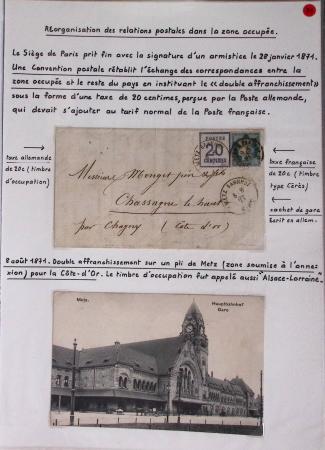 Réorganisation des relations postales dans la zone occupée.
Le Siège de Paris prit fin avec la signature d'un armistice le 28 janvier 1871.
Une Convention postale rétablit l'échange des correspondances entre la
zone occupée et le reste du pays en instituant le <<double affranchissement>>
sous la forme d'une taxe de 20 centimes, perçue par la Poste allemande,
qui devait s'ajouter au tarif normal de la Poste française.
taxe allemande
de 20c (timbre
d'occupation)
POSTES
20
CENTIMES
Messieurs Monget père et fils
Chassagne le haut
par Chagny (Côte d'or)
taxe française
de 20c (timbre
type Cérès)
cachet de gare
écrit en allem.
8 août 1871. Double affranchissement sur un pli de Metz (zone soumise à l'anne-
xion) pour la Côte-d'Or. Le timbre d'occupation fut appelé aussi "Alsace-Lorraine".
Metz.
Hauptbahnhof
Gare